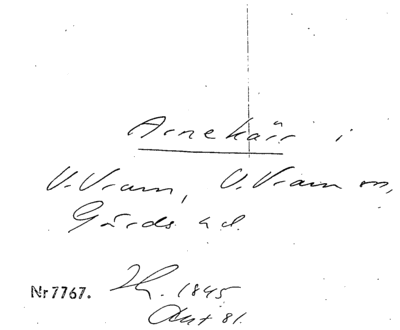 Arnekärr i
V. Vram, V. Vram sn,
Gärds hd.
Nr 7767. 1845
Akt 81.